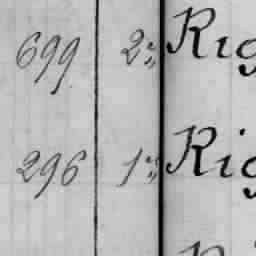 699 2" Rig
296 1" Rig